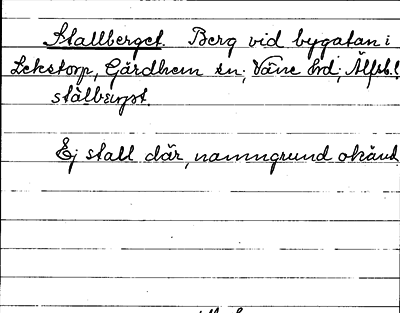 Stallberget. Berg vid bygatan i
Lekstorp, Gärdhem sn; Väne hd; Älfsb. l.
stálbærjət
Ej stall där, namngrund okänd